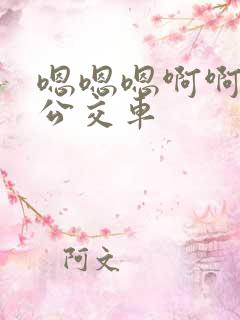 嗯嗯嗯啊啊
公交车
阿文